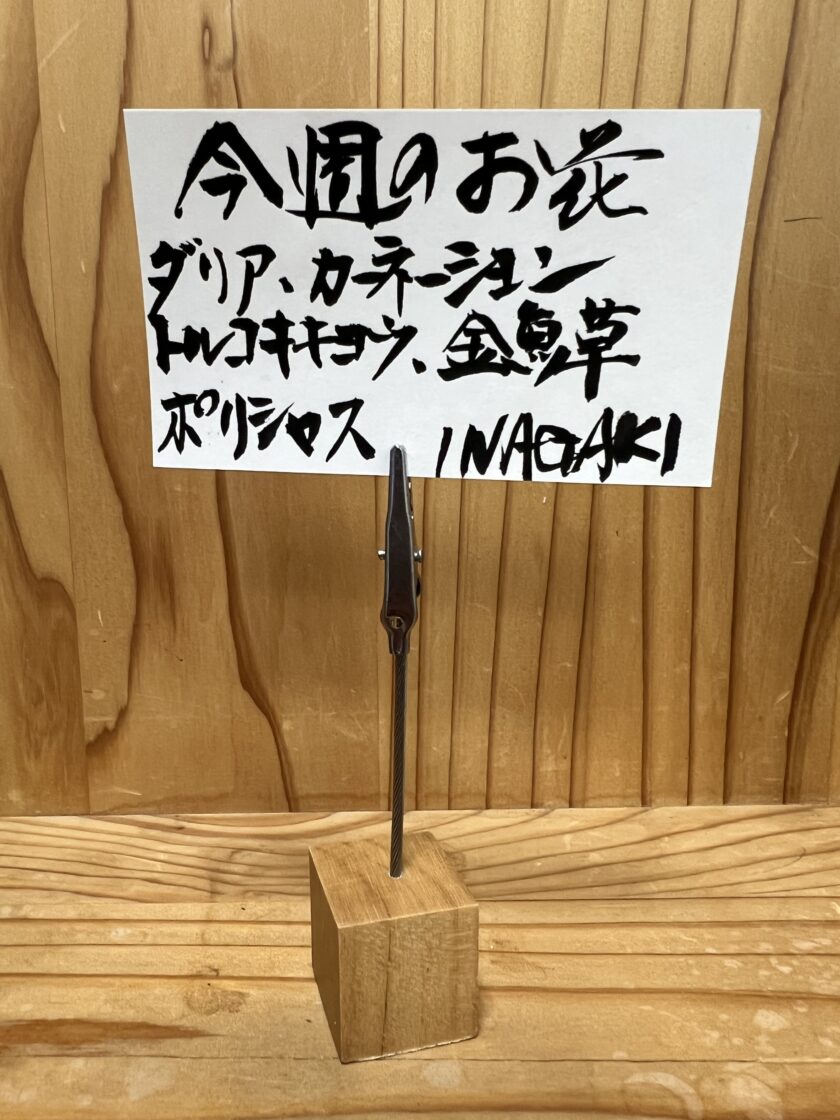 今週のお花
ダリア、カーネーション
トルコキキョウ、金魚草
ポリシャス
INAGAKI